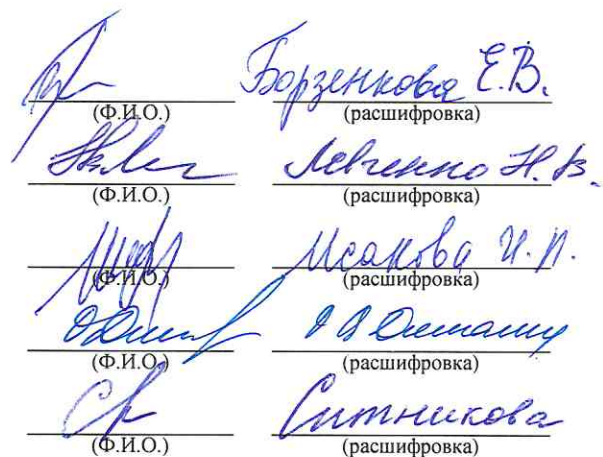 Борзенкова Е.В.
(Ф.И.О.) (расшифровка)
Левченко Н.В.
(Ф.И.О.) (расшифровка)
Исакова И.П.
(Ф.И.О.) (расшифровка)
О В
(Ф.И.О.) (расшифровка)
Ситникова
(Ф.И.О.) (расшифровка)